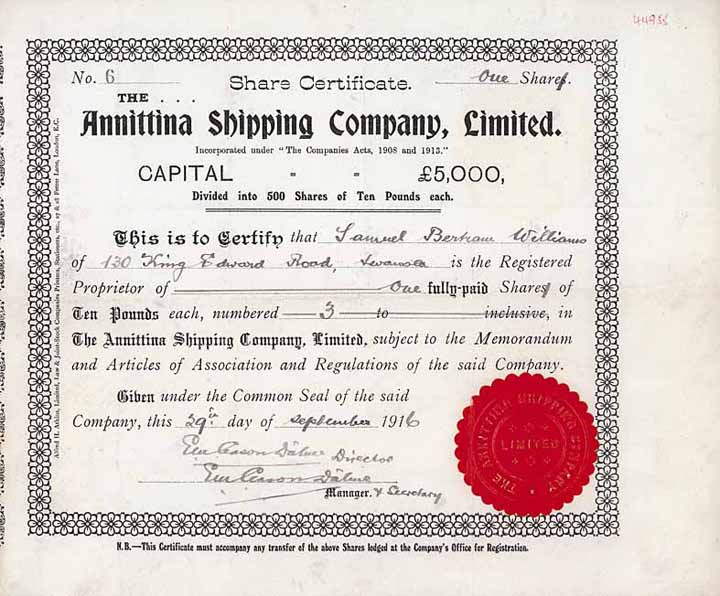 44955
No. 6
Share Certificate.
One Shares.
THE . . .
Annittina Shipping Company, Limited.
Incorporated under "The Companies Acts, 1908 and 1913."
CAPITAL - - £5,000,
Divided into 500 Shares of Ten Pounds each.
This is to Certify that Samuel Bertram Williams
of 130 King Edward Road, Swansea is the Registered
Proprietor of One fully-paid Shares of
Ten Pounds each, numbered 3 to inclusive, in
The Annittina Shipping Company, Limited, subject to the Memorandum
and Articles of Association and Regulations of the said Company.
Given under the Common Seal of the said
Company, this 29th day of September 1916
Director
Manager. & Secretary
THE ANNITTINA SHIPPING COMPANY
LIMITED
N.B.—This Certificate must accompany any transfer of the above Shares lodged at the Company's Office for Registration.
Alfred H. Atkins, Limited, Law & Joint-Stock Companies Printers, Stationers, etc., 27 & 28 Fetter Lane, London, E.C.